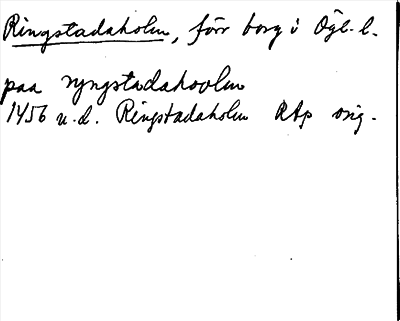 Ringstadaholm, förr borg i Ögl. l.
paa ryngstadahoolm
1456 u.d. Ringstadaholm RAp orig.